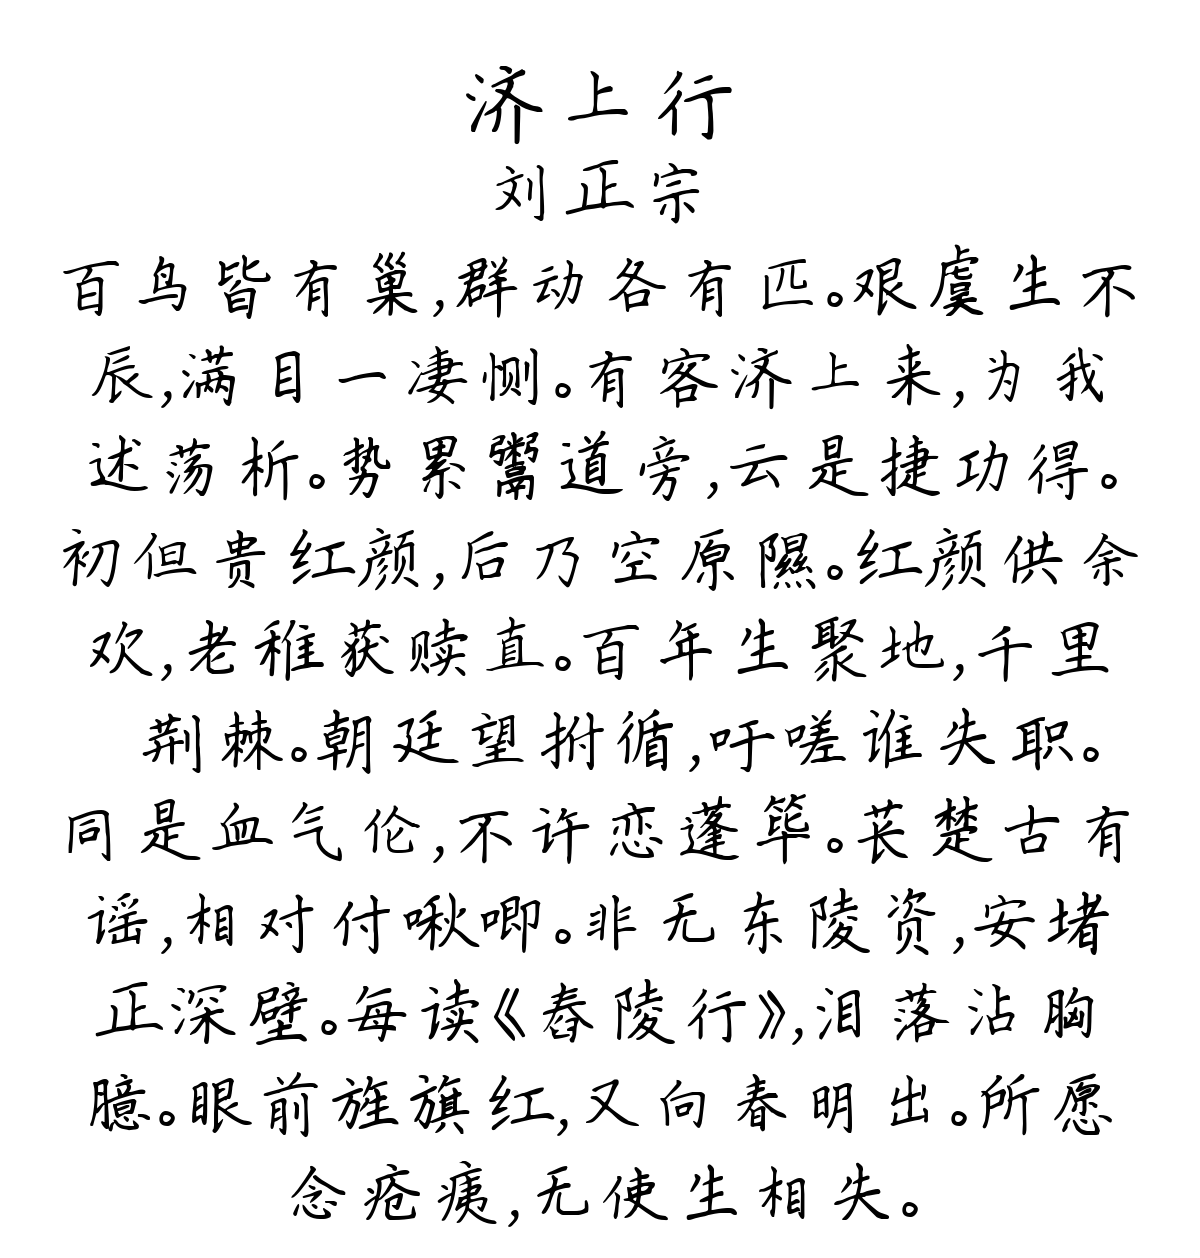 济上行
刘正宗
百鸟皆有巢,群动各有匹。艰虞生不
辰,满目一凄恻。有客济上来,为我
述荡析。势累鬻道旁,云是捷功得。
初但贵红颜,后乃空原隰。红颜供余
欢,老稚获赎直。百年生聚地,千里
荆棘。朝廷望拊循,吁嗟谁失职。
同是血气伦,不许恋蓬筚。苌楚古有
谣,相对付啾唧。非无东陵资,安堵
正深壁。每读《舂陵行》,泪落沾胸
臆。眼前旌旗红,又向春明出。所愿
念疮痍,无使生相失。